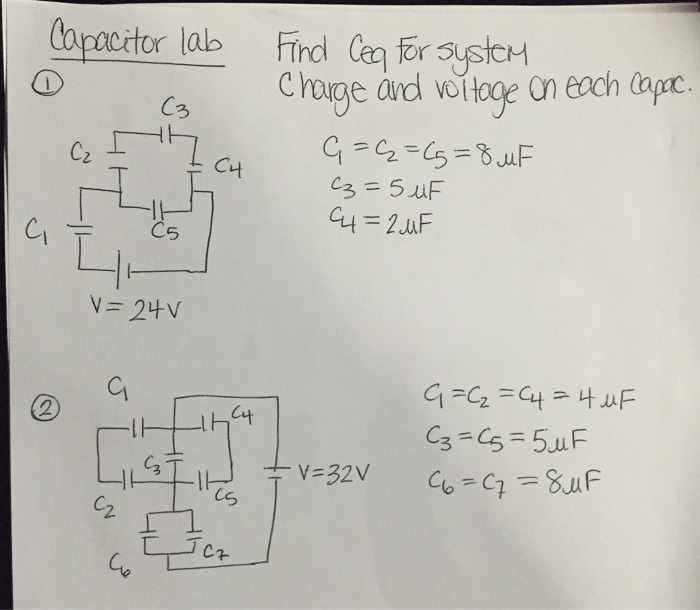 Capacitor lab
Find Ceq for system
Charge and voltage on each capac.
①
C3
C2
C4
C1
C5
V = 24V
C1 = C2 = C5 = 8 μF
C3 = 5 μF
C4 = 2 μF
②
C1
C4
C3
V = 32V
C2
C5
C6
C7
C1 = C2 = C4 = 4 μF
C3 = C5 = 5 μF
C6 = C7 = 8 μF